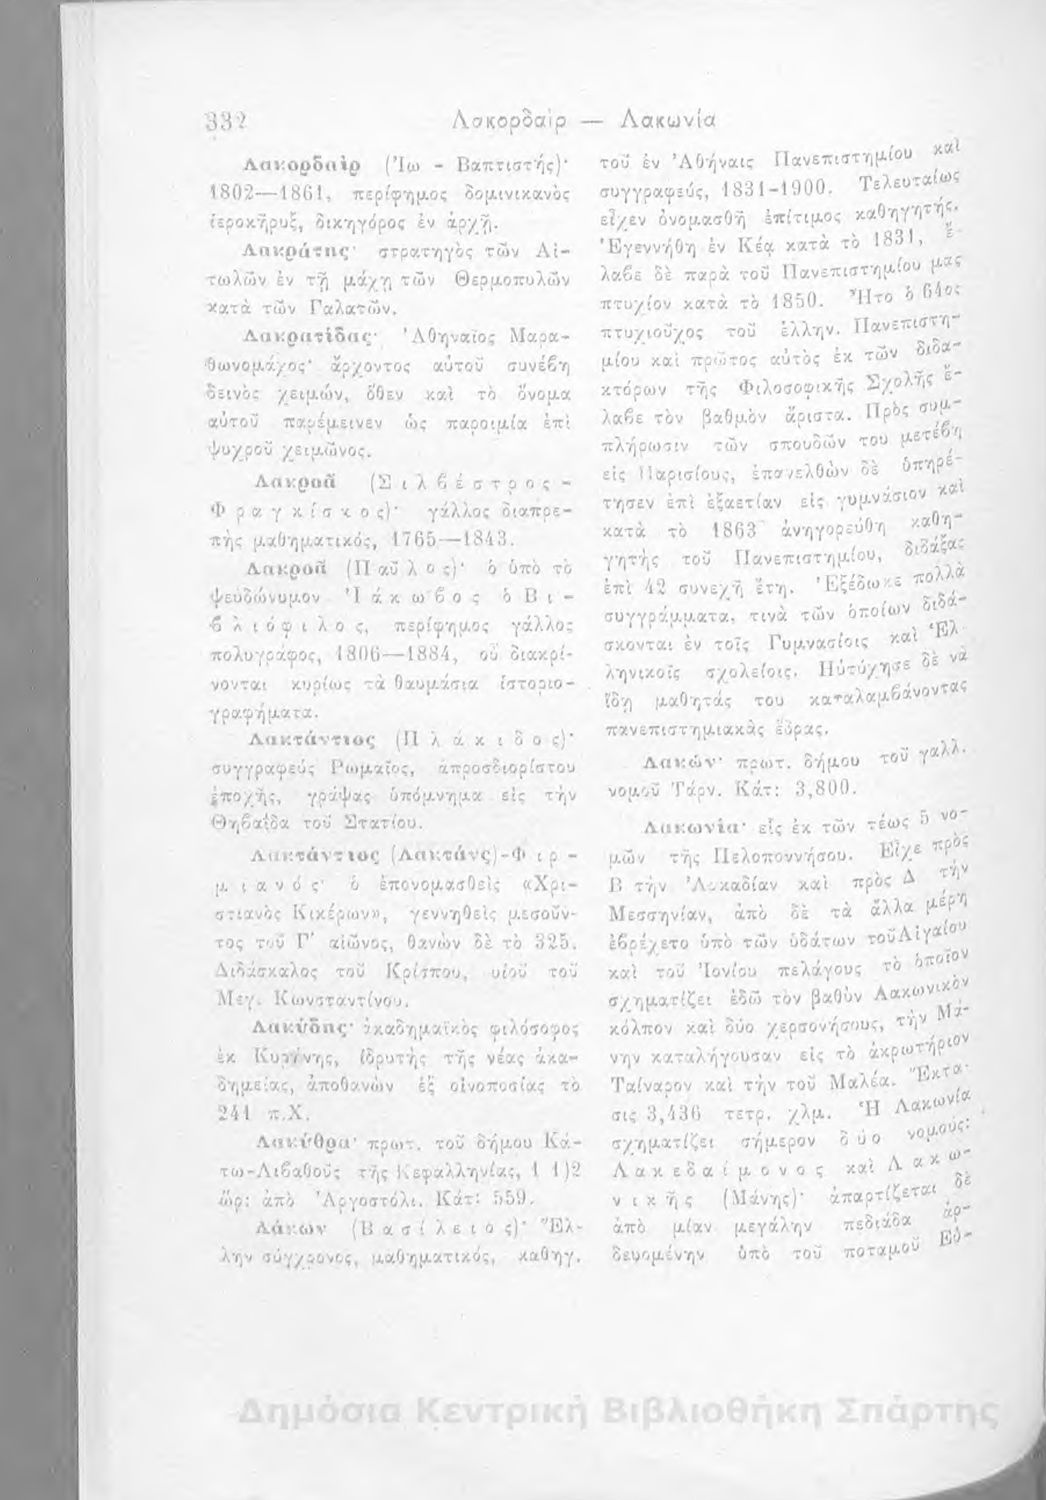 332
Λακορδαὶρ — Λακωνία
Λακορδαὶρ (Ἰω - Βαπτιστής)·
1802—1861, περίφημος δομινικανὸς
ἱεροκῆρυξ, δικηγόρος ἐν ἀρχῇ.
Λακράτης· στρατηγὸς τῶν Αἰ-
τωλῶν ἐν τῇ μάχῃ τῶν Θερμοπυλῶν
κατὰ τῶν Γαλατῶν.
Λακρατίδας· Ἀθηναῖος Μαρα-
θωνομάχος· ἄρχοντος αὐτοῦ συνέβη
δεινὸς χειμών, ὅθεν καὶ τὸ ὄνομα
αὐτοῦ παρέμεινεν ὡς παροιμία ἐπὶ
ψυχροῦ χειμῶνος.
Λακροᾶ (Σιλβέστρος -
Φραγκίσκος)· γάλλος διαπρε-
πὴς μαθηματικός, 1765—1843.
Λακροᾶ (Παῦλος)· ὁ ὑπὸ τὸ
ψευδώνυμον Ἰάκωβος ὁ Βι-
βλιόφιλος, περίφημος γάλλος
πολυγράφος, 1806—1884, οὗ διακρί-
νονται κυρίως τὰ θαυμάσια ἱστοριο-
γραφήματα.
Λακτάντιος (Πλάκιδος)·
συγγραφεὺς Ῥωμαῖος, ἀπροσδιορίστου
ἐποχῆς, γράψας ὑπόμνημα εἰς τὴν
Θηβαΐδα τοῦ Στατίου.
Λακτάντιος (Λακτάνς)-Φιρ-
μιανός· ὁ ἐπονομασθεὶς «Χρι-
στιανὸς Κικέρων», γεννηθεὶς μεσοῦν-
τος τοῦ Γ' αἰῶνος, θανὼν δὲ τὸ 325.
Διδάσκαλος τοῦ Κρίσπου, υἱοῦ τοῦ
Μεγ. Κωνσταντίνου.
Λακύδης· ἀκαδημαϊκὸς φιλόσοφος
ἐκ Κυρήνης, ἱδρυτὴς τῆς νέας ἀκα-
δημείας, ἀποθανὼν ἐξ οἰνοποσίας τὸ
241 π.Χ.
Λακύθρα· πρωτ. τοῦ δήμου Κά-
τω-Λιβαθοῦς τῆς Κεφαλληνίας, 1 1)2
ὥρ: ἀπὸ Ἀργοστόλι. Κάτ: 559.
Λάκων (Βασίλειος)· Ἕλ-
λην σύγχρονος, μαθηματικός, καθηγ.
τοῦ ἐν Ἀθήναις Πανεπιστημίου καὶ
συγγραφεύς, 1831-1900. Τελευταίως
εἶχεν ὀνομασθῆ ἐπίτιμος καθηγητής.
Ἐγεννήθη ἐν Κέᾳ κατὰ τὸ 1831, ἔ-
λαβε δὲ παρὰ τοῦ Πανεπιστημίου μας
πτυχίον κατὰ τὸ 1850. Ἦτο ὁ 64ος
πτυχιοῦχος τοῦ ἑλλην. Πανεπιστη-
μίου καὶ πρῶτος αὐτὸς ἐκ τῶν διδα-
κτόρων τῆς Φιλοσοφικῆς Σχολῆς ἔ-
λαβε τὸν βαθμὸν ἄριστα. Πρὸς συμ-
πλήρωσιν τῶν σπουδῶν του μετέβη
εἰς Παρισίους, ἐπανελθὼν δὲ ὑπηρέ-
τησεν ἐπὶ ἑξαετίαν εἰς γυμνάσιον καὶ
κατὰ τὸ 1863 ἀνηγορεύθη καθη-
γητὴς τοῦ Πανεπιστημίου, διδάξας
ἐπὶ 42 συνεχῆ ἔτη. Ἐξέδωκε πολλὰ
συγγράμματα, τινὰ τῶν ὁποίων διδά-
σκονται ἐν τοῖς Γυμνασίοις καὶ Ἑλ-
ληνικοῖς σχολείοις. Ηὐτύχησε δὲ νὰ
ἴδῃ μαθητάς του καταλαμβάνοντας
πανεπιστημιακὰς ἕδρας.
Λακών· πρωτ. δήμου τοῦ γαλλ.
νομοῦ Τάρν. Κάτ: 3,800.
Λακωνία· εἷς ἐκ τῶν τέως 5 νο-
μῶν τῆς Πελοποννήσου. Εἶχε πρὸς
Β τὴν Ἀρκαδίαν καὶ πρὸς Δ τὴν
Μεσσηνίαν, ἀπὸ δὲ τὰ ἄλλα μέρη
ἐβρέχετο ὑπὸ τῶν ὑδάτων τοῦ Αἰγαίου
καὶ τοῦ Ἰονίου πελάγους τὸ ὁποῖον
σχηματίζει ἐδῶ τὸν βαθὺν Λακωνικὸν
κόλπον καὶ δύο χερσονήσους, τὴν Μά-
νην καταλήγουσαν εἰς τὸ ἀκρωτήριον
Ταίναρον καὶ τὴν τοῦ Μαλέα. Ἔκτα-
σις 3,436 τετρ. χλμ. Ἡ Λακωνία
σχηματίζει σήμερον δύο νομούς:
Λακεδαίμονος καὶ Λακω-
νικῆς (Μάνης)· ἀπαρτίζεται δὲ
ἀπὸ μίαν μεγάλην πεδιάδα ἀρ-
δευομένην ὑπὸ τοῦ ποταμοῦ Εὐ-
Δημόσια Κεντρική Βιβλιοθήκη Σπάρτης